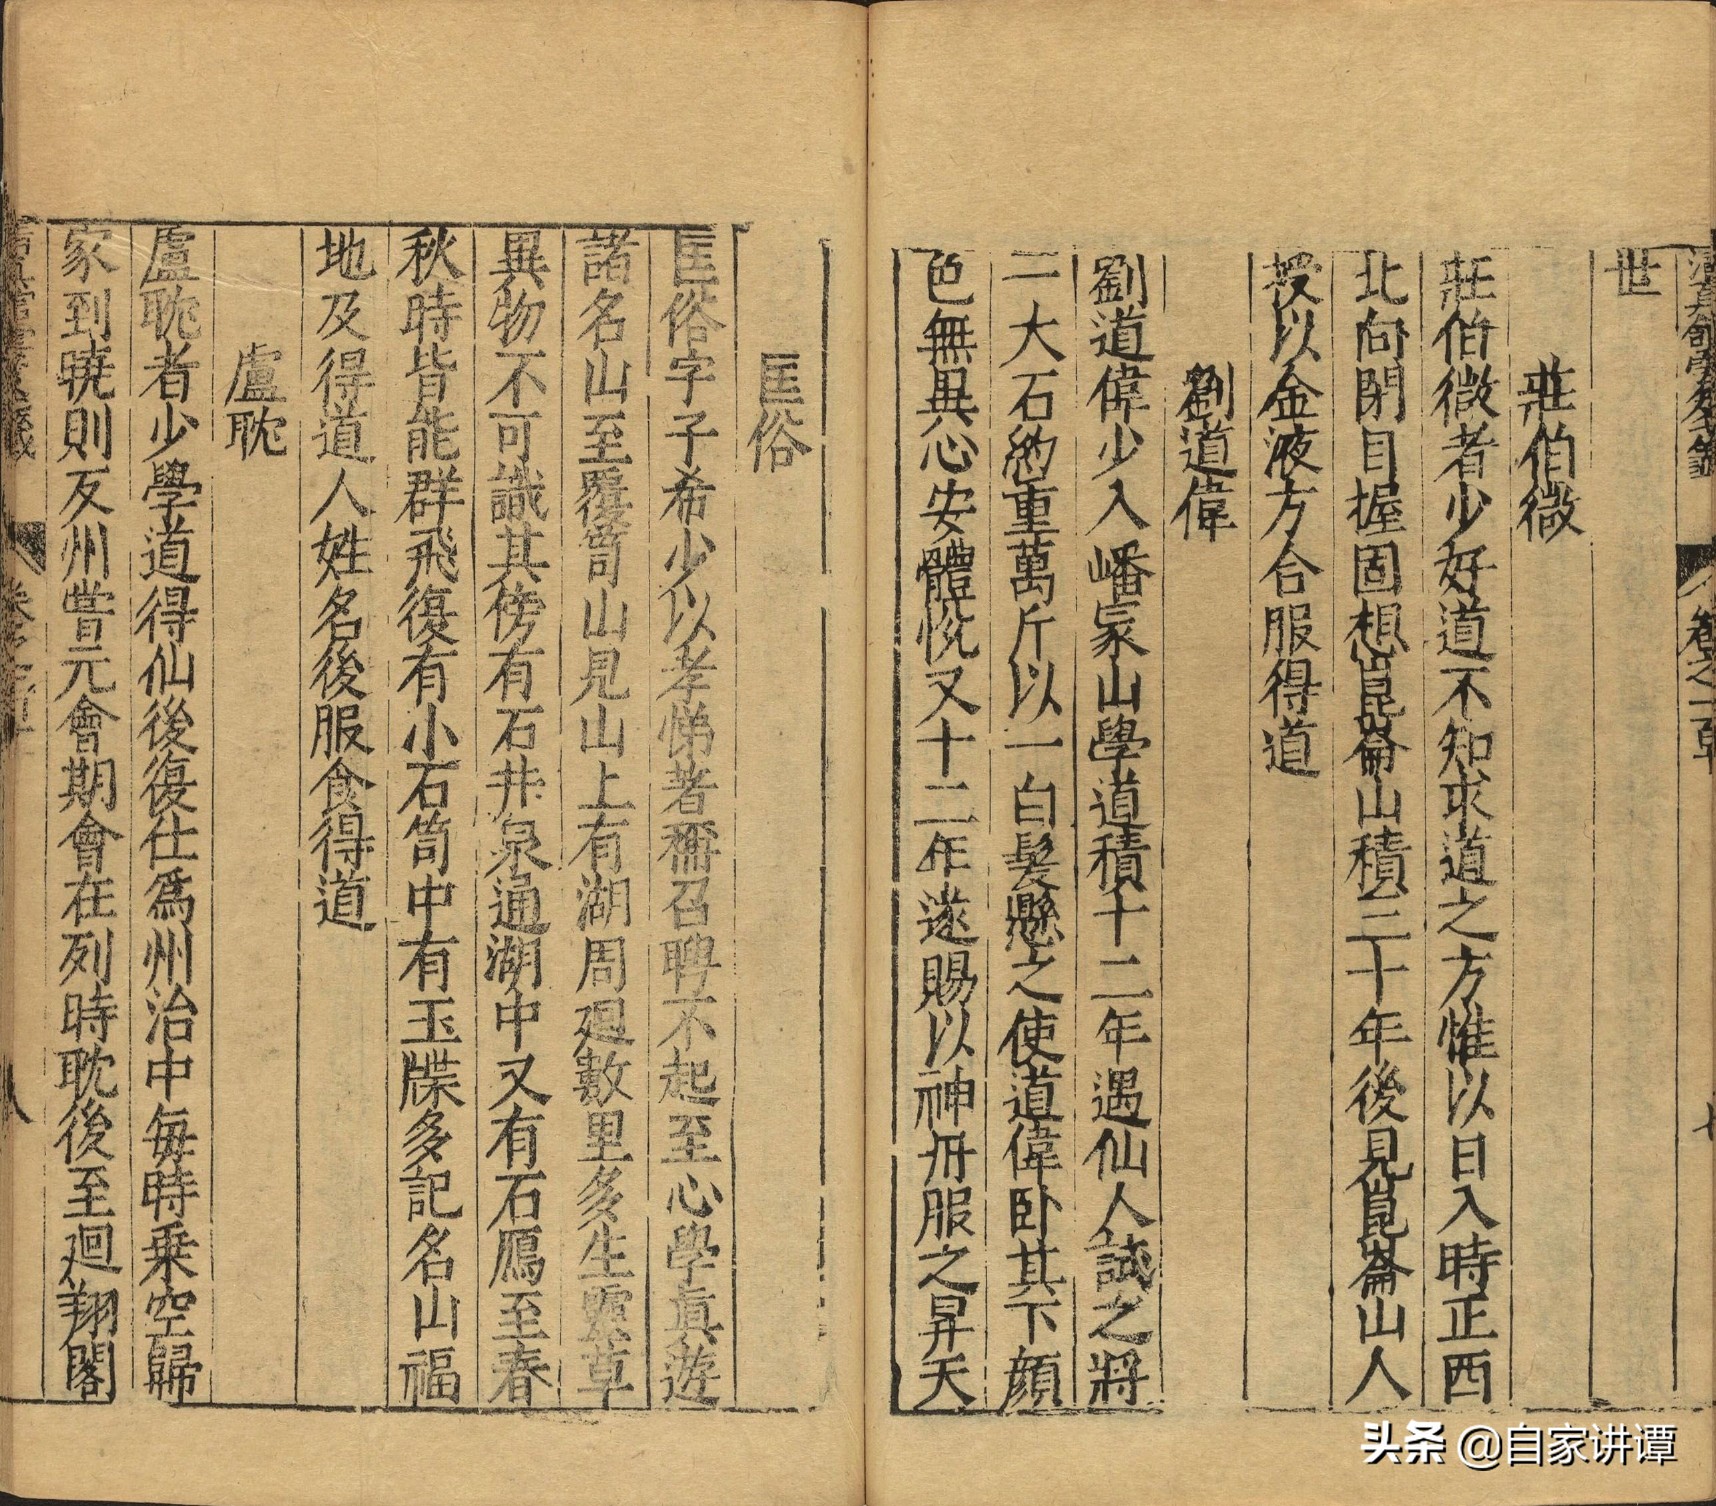 世
莊伯微
莊伯微者少好道不知求道之方惟以日入時正西
北向閉目握固想崑崙山積三十年後見崑崙山人
授以金液方合服得道
劉道偉
劉道偉少入嶓冢山學道積十二年遇仙人試之將
一大石約重萬斤以一白髮懸之使道偉卧其下顔
色無異心安體悅又十二年遂賜以神丹服之昇天
匡俗
匡俗字子希少以孝悌著稱召聘不起至心學眞遊
諸名山至覆笥山見山上有湖周廻數里多生靈草
異物不可識其傍有石井泉通湖中又有石鴈至春
秋時皆能群飛復有小石笥中有玉牒多記名山福
地及得道人姓名後服食得道
盧耽
盧耽者少學道得仙後復仕爲州治中每時乗空歸
家到曉則反州嘗元會期會在列時耽後至廻翔閣
八
头条 @自家讲谭